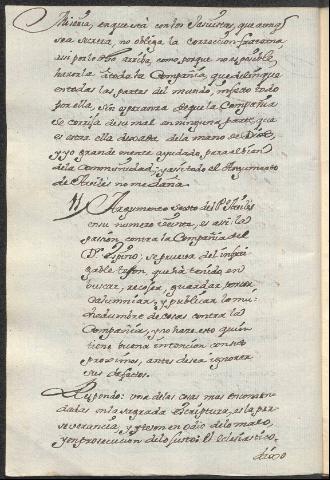 Mxia, en que està con los Jesuitas, que aunq̃
sea secreta, no obliga la correccion fraterna
assi por lo dho arriba, como porque no es posible
hazerla à toda la Compañia, que delinque
en todas las partes del mundo, infecto todo
por ella, sin esperanza de que la Compañia
se corrija de su mal en ninguna parte, que
es estar ella dexada de la mano de Dios,
y yo grandemente ayudado para el bien
de la Communidad; y assi todo el Argumento
de Avilès no me daña.
11 Argumento Sexto del P. Avilès
en su numero veinte, es assi: la
pasion contra la Compañia del
Dr. Espino, se prueva del infati-
gable teson, que ha tenido en
buscar, recojer, guardar, poner
calumniar, y publicar la mu-
chedumbre de cosas contra la
Compañia, y no haze esto quien
tiene buena intencion con sus
proximos, antes desea ignorar
sus defectos.
Respondo: una de las cosas mas encomen-
dadas en la sagrada escriptura, es la per-
severancia, y teson en odio de lo malo,
y en prosecucion de lo justo: El eclesiastico.
dixo